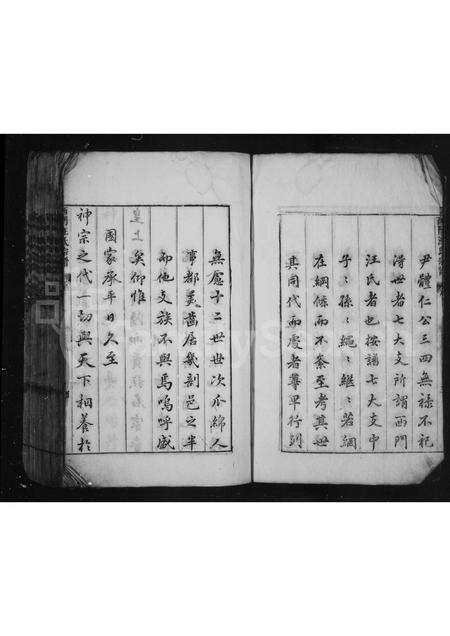 尹體仁公三四無祿不祀
得世者七大支所謂西門
汪氏者也按譜七大支中
子〻孫〻繩〻繼〻若網
在綱條而不紊至考其世
其同代而處者尊卑行列
無慮十二世世次瓜綿人
諱都美茜居幾剖邑之半
而他支族不與焉嗚呼盛
矣仰惟
皇上
國家承平日久至
神宗之代一切與天下相養於